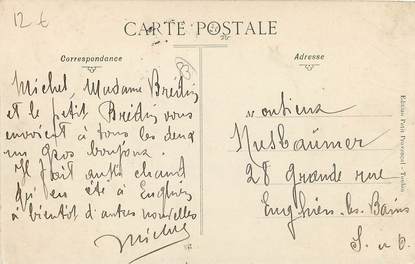 12 €
CARTE POSTALE
Correspondance
Adresse
83
Michel, Madame Brédin
et le petit Brédin vous
envoient à tous les deux
un gros bonjour.
Il fait aussi chaud
qu'en été à Enghien
à bientôt d'autres nouvelles
Michel
Monsieur
Nusbaümer
28 grande rue
Enghien-les-Bains
S. et O.
Edition Petit Provençal - Toulon